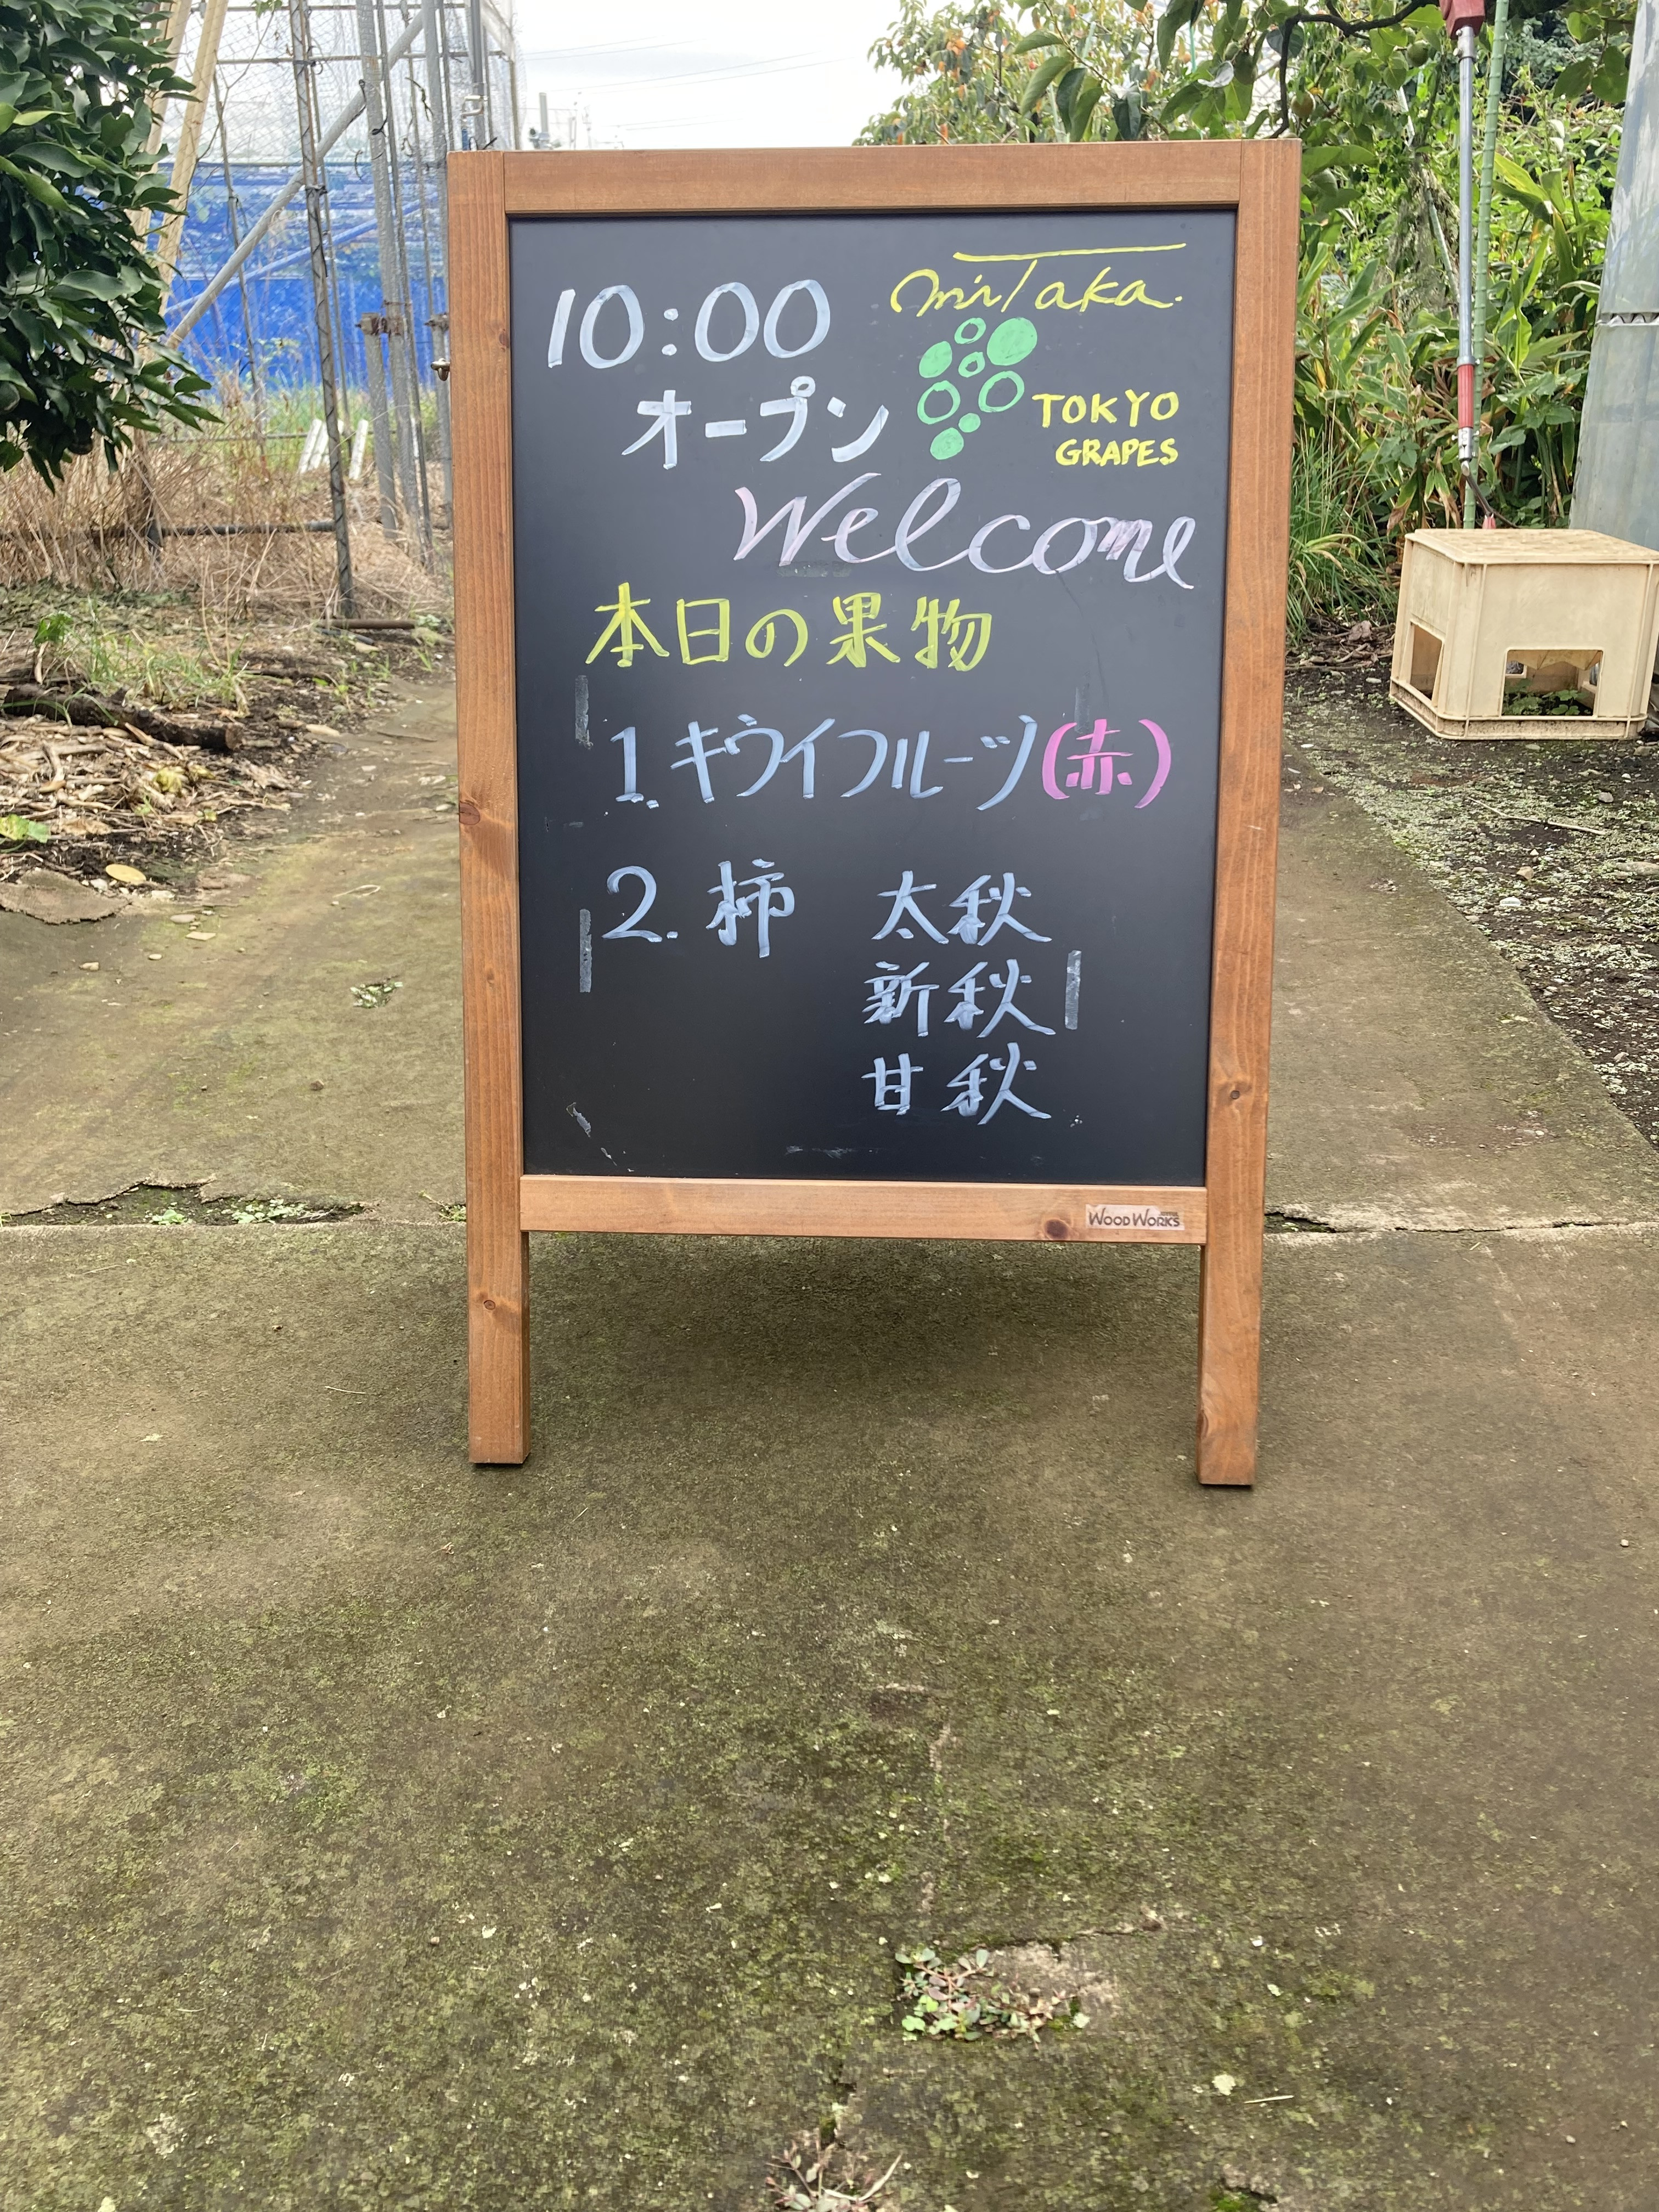 10:00
オープン
miTaka.
TOKYO
GRAPES
Welcome
本日の果物
1. キウイフルーツ(赤)
2. 柿 太秋
新秋
甘秋
WOOD WORKS